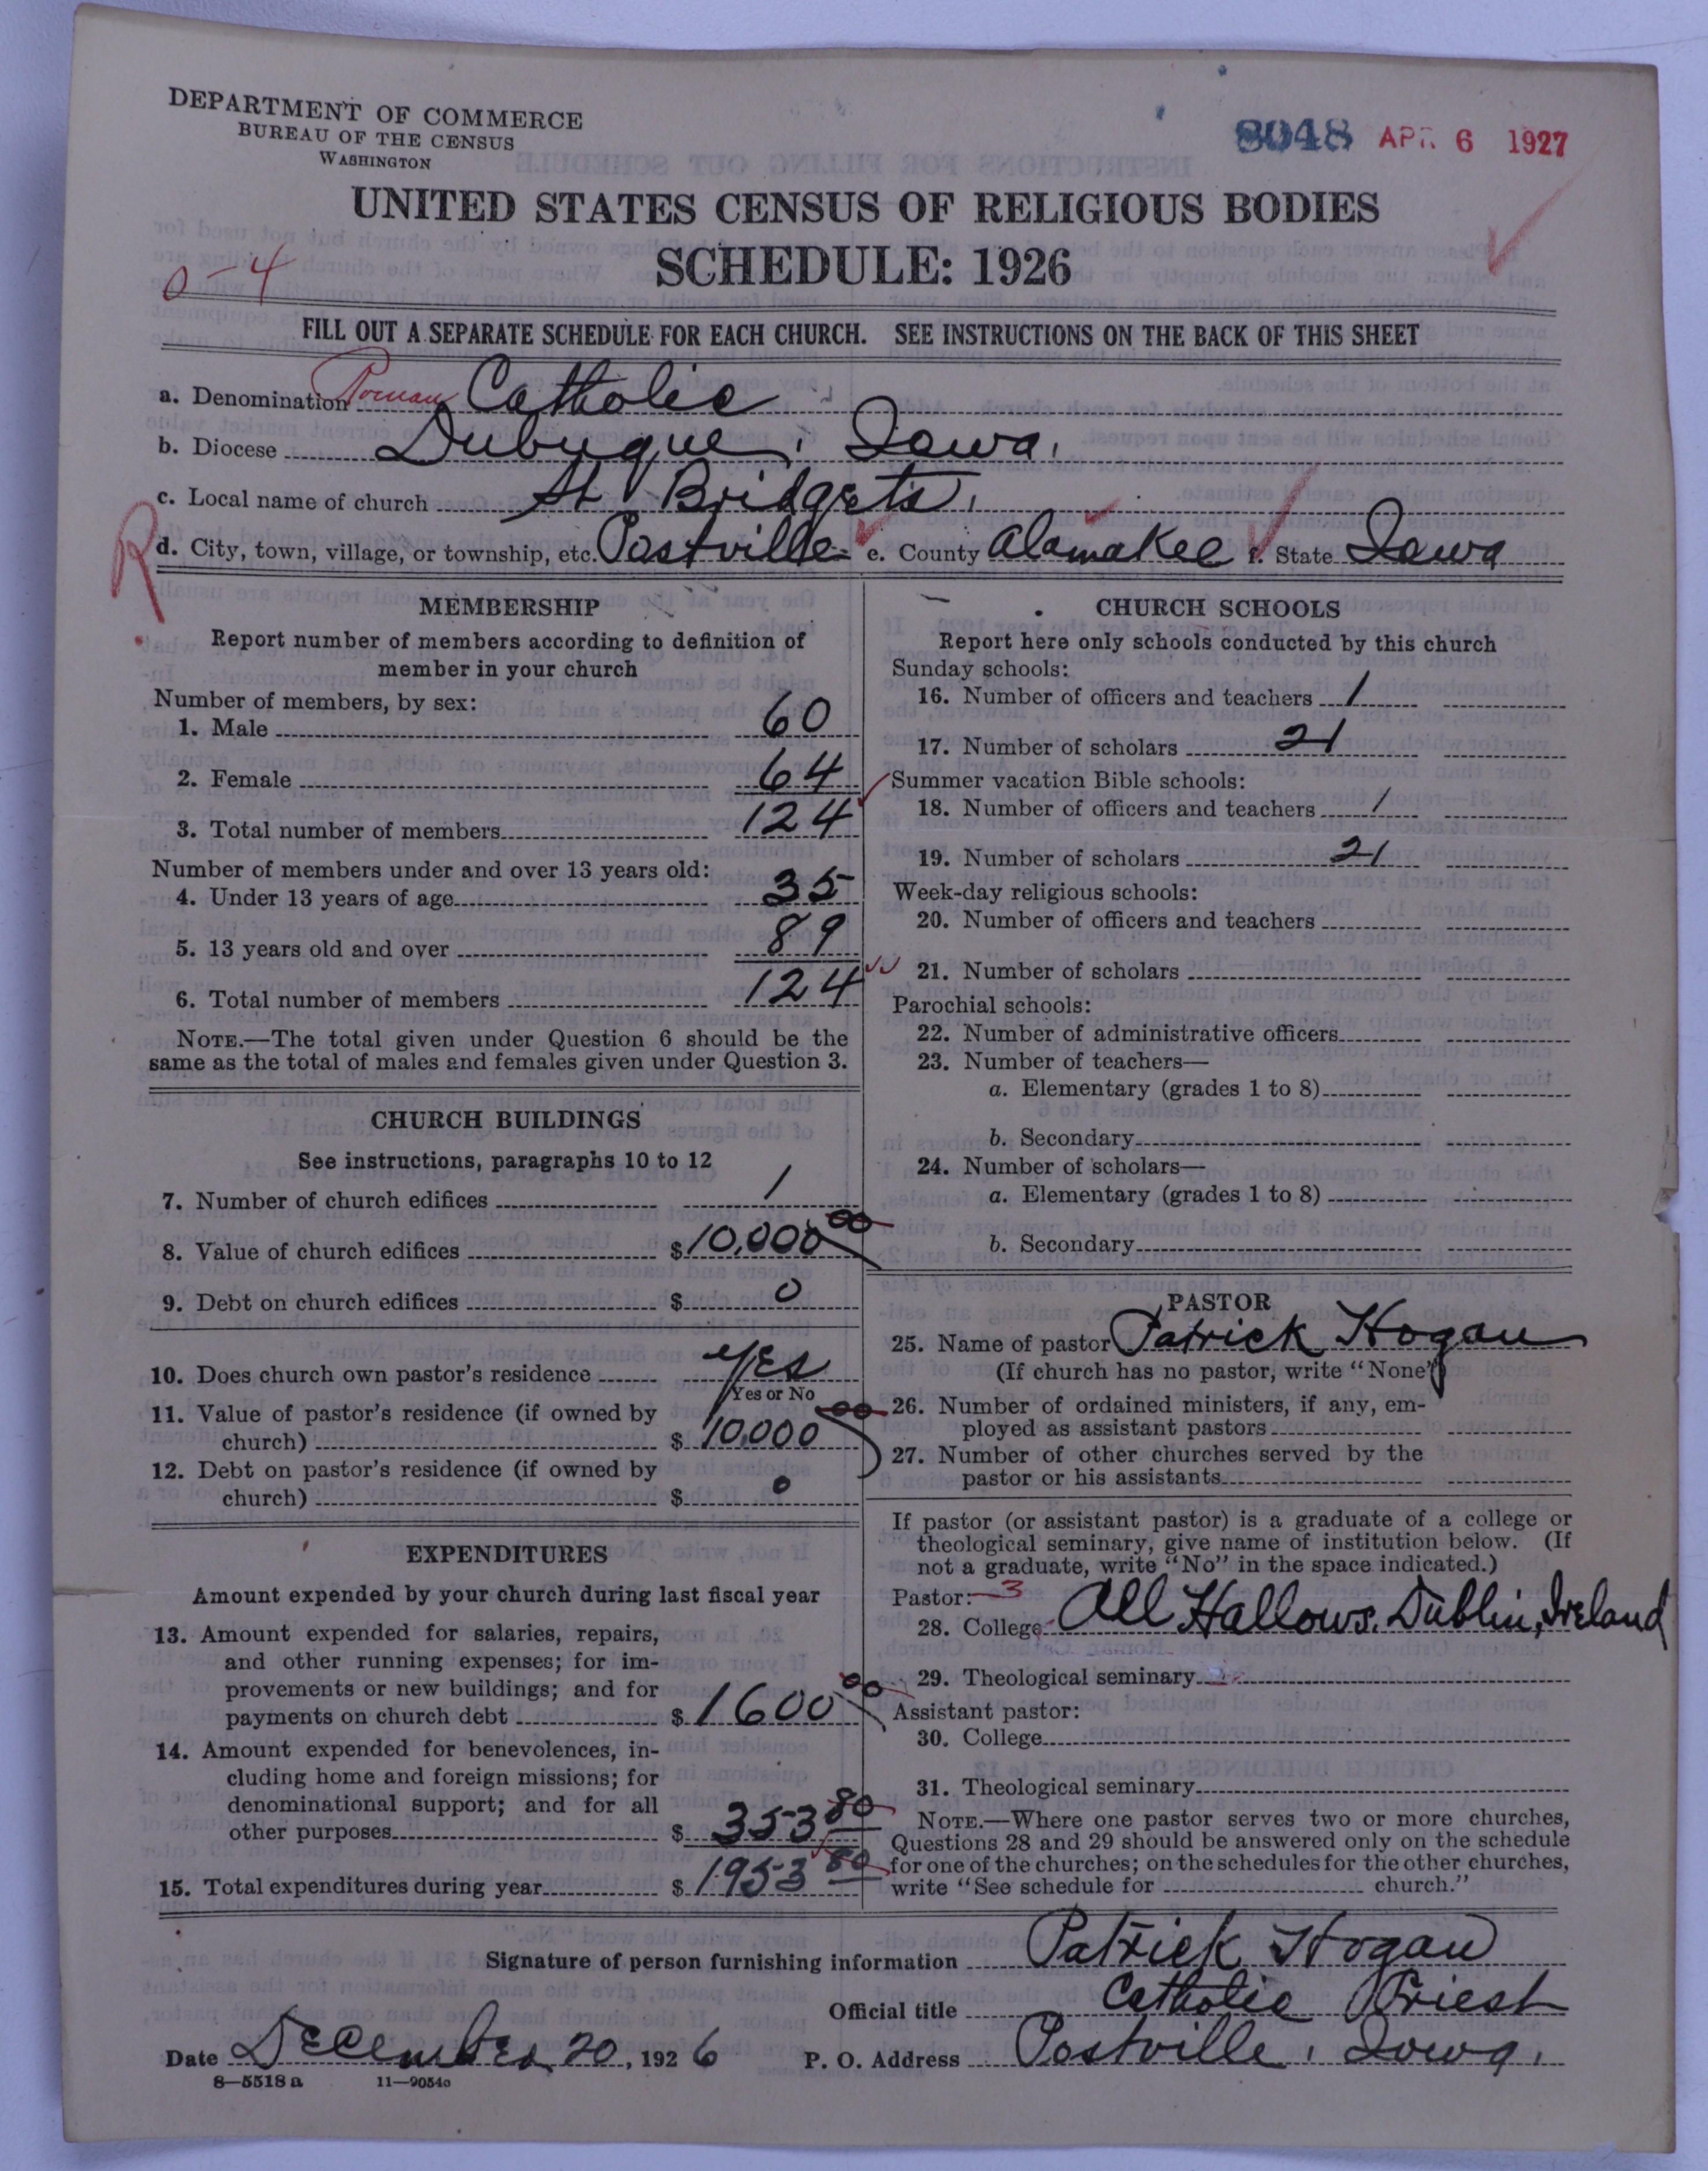 DEPARTMENT OF COMMERCE
BUREAU OF THE CENSUS
WASHINGTON
8048 APR. 6 1927
UNITED STATES CENSUS OF RELIGIOUS BODIES
SCHEDULE: 1926
0-4
FILL OUT A SEPARATE SCHEDULE FOR EACH CHURCH. SEE INSTRUCTIONS ON THE BACK OF THIS SHEET
a. Denomination Roman Catholic
b. Diocese Dubuque, Iowa.
c. Local name of church St Bridget's.
R
d. City, town, village, or township, etc. Postville e. County Alamakee f. State Iowa
MEMBERSHIP
Report number of members according to definition of
member in your church
Number of members, by sex:
1. Male 60
2. Female 64
3. Total number of members 124
Number of members under and over 13 years old:
4. Under 13 years of age 35
5. 13 years old and over 89
6. Total number of members 124
NOTE.—The total given under Question 6 should be the
same as the total of males and females given under Question 3.
CHURCH BUILDINGS
See instructions, paragraphs 10 to 12
7. Number of church edifices 1
8. Value of church edifices $10,000 00
9. Debt on church edifices $ 0
10. Does church own pastor's residence Yes
Yes or No
11. Value of pastor's residence (if owned by
church) $ 10,000 00
12. Debt on pastor's residence (if owned by
church) $ 0
EXPENDITURES
Amount expended by your church during last fiscal year
13. Amount expended for salaries, repairs,
and other running expenses; for im-
provements or new buildings; and for
payments on church debt $ 1600 00
14. Amount expended for benevolences, in-
cluding home and foreign missions; for
denominational support; and for all
other purposes $ 353 80
15. Total expenditures during year $ 1953 80
CHURCH SCHOOLS
Report here only schools conducted by this church
Sunday schools:
16. Number of officers and teachers 1
17. Number of scholars 21
Summer vacation Bible schools:
18. Number of officers and teachers 1
19. Number of scholars 21
Week-day religious schools:
20. Number of officers and teachers
21. Number of scholars
Parochial schools:
22. Number of administrative officers
23. Number of teachers—
a. Elementary (grades 1 to 8)
b. Secondary
24. Number of scholars—
a. Elementary (grades 1 to 8)
b. Secondary
PASTOR
25. Name of pastor Patrick Hogan
(If church has no pastor, write "None")
26. Number of ordained ministers, if any, em-
ployed as assistant pastors
27. Number of other churches served by the
pastor or his assistants
If pastor (or assistant pastor) is a graduate of a college or
theological seminary, give name of institution below. (If
not a graduate, write "No" in the space indicated.)
Pastor: 3
28. College All Hallows. Dublin, Ireland
29. Theological seminary
Assistant pastor:
30. College
31. Theological seminary
NOTE.—Where one pastor serves two or more churches,
Questions 28 and 29 should be answered only on the schedule
for one of the churches; on the schedules for the other churches,
write "See schedule for church."
Signature of person furnishing information Patrick Hogan
Official title Catholic Priest
Date December 20, 1926 P. O. Address Postville, Iowa.
8—5518 a 11—9054c